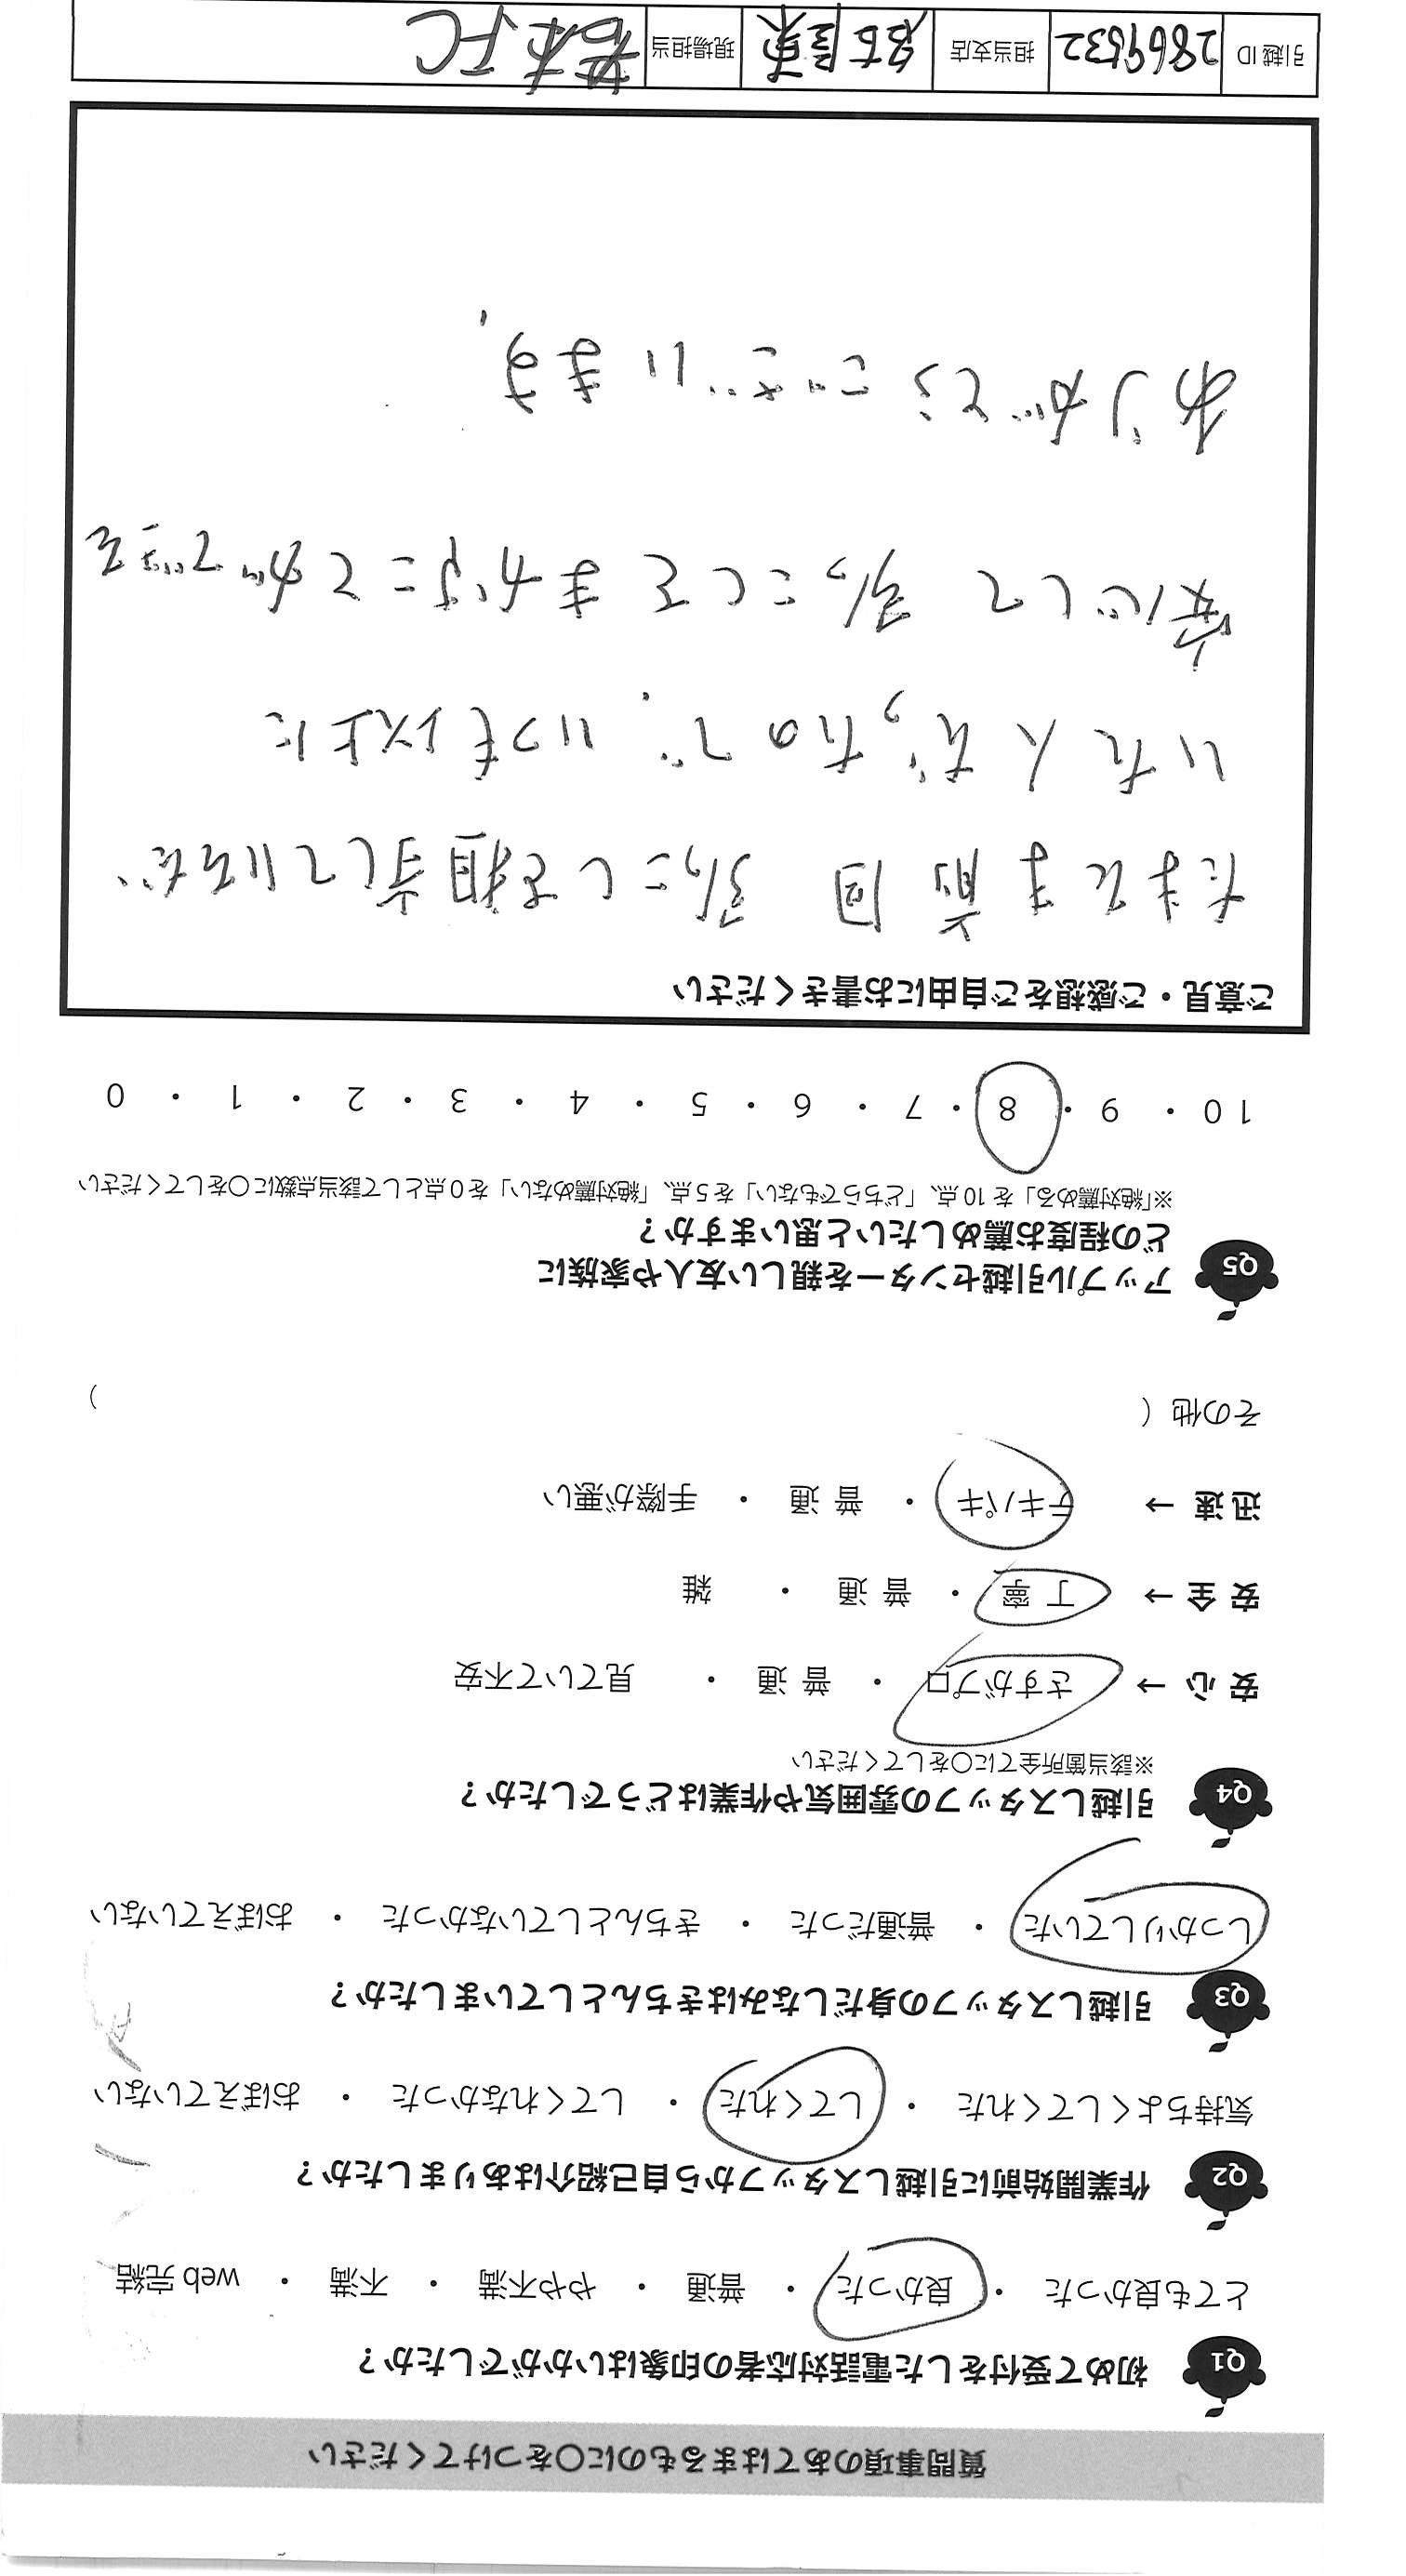 質問事項のあてはまるものに○をつけてください
Q1 初めて受付をした電話対応者の印象はいかがでしたか？
とても良かった ・ 良かった ・ 普通 ・ やや不満 ・ 不満 ・ web 完結
Q2 作業開始前に引越しスタッフから自己紹介はありましたか？
気持ちよくしてくれた ・ してくれた ・ してくれなかった ・ おぼえていない
Q3 引越しスタッフの身だしなみはきちんとしていましたか？
しっかりしていた ・ 普通だった ・ きちんとしていなかった ・ おぼえていない
Q4 引越しスタッフの雰囲気や作業はどうでしたか？
※該当箇所全てに○をしてください
安 心 → さすがプロ ・ 普 通 ・ 見ていて不安
安 全 → 丁 寧 ・ 普 通 ・ 雑
迅 速 → テキパキ ・ 普 通 ・ 手際が悪い
その他（ ）
Q5 アップル引越センターを親しい友人や家族に
どの程度お薦めしたいと思いますか？
※「絶対薦める」を 10 点、「どちらでもない」を 5 点、「絶対薦めない」を 0 点として該当点数に○をしてください
10 ・ 9 ・ 8 ・ 7 ・ 6 ・ 5 ・ 4 ・ 3 ・ 2 ・ 1 ・ 0
ご意見・ご感想をご自由にお書きください
たまたま前回 引っこしを担当していただ
いた人だったので、いつも以上に
安心して 引っこしを まかすことができて
ありがとうございます。
引越 ID 2869532 担当支店 名古屋東 現場担当 若本FC